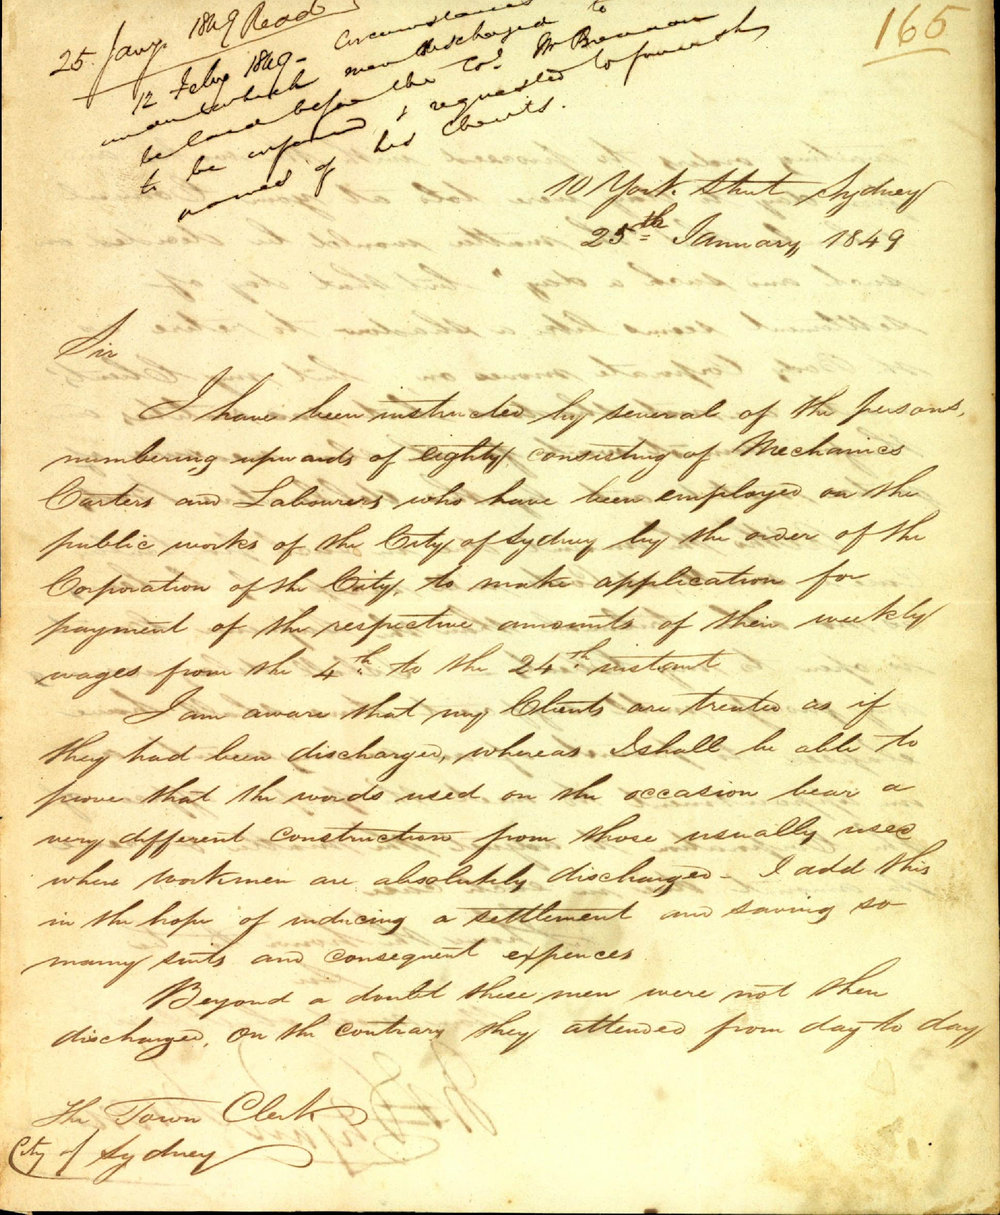 165
25 Jany 1849 Read
12 Feby 1849 - Circumstances
under which men discharged to
be laid before the Cos. Mr Brennan
to be informed & requested to furnish
names of his Clients.
10 York Street Sydney
25th January 1849
Sir
I have been instructed by several of the persons,
numbering upwards of eighty consisting of Mechanics
Carters and Labourers who have been employed on the
public works of the City of Sydney by the order of the
Corporation of the City, to make application for
payment of the respective amounts of their weekly
wages from the 4th to the 24th instant
I am aware that my Clients are treated as if
they had been discharged, whereas I shall be able to
prove that the words used on the occasion bear a
very different construction from those usually used
where workmen are absolutely discharged - I add this
in the hope of inducing a settlement and saving so
many suits and consequent expences
Beyond a doubt these men were not then
discharged, on the contrary they attended from day to day
The Town Clerk
City of Sydney